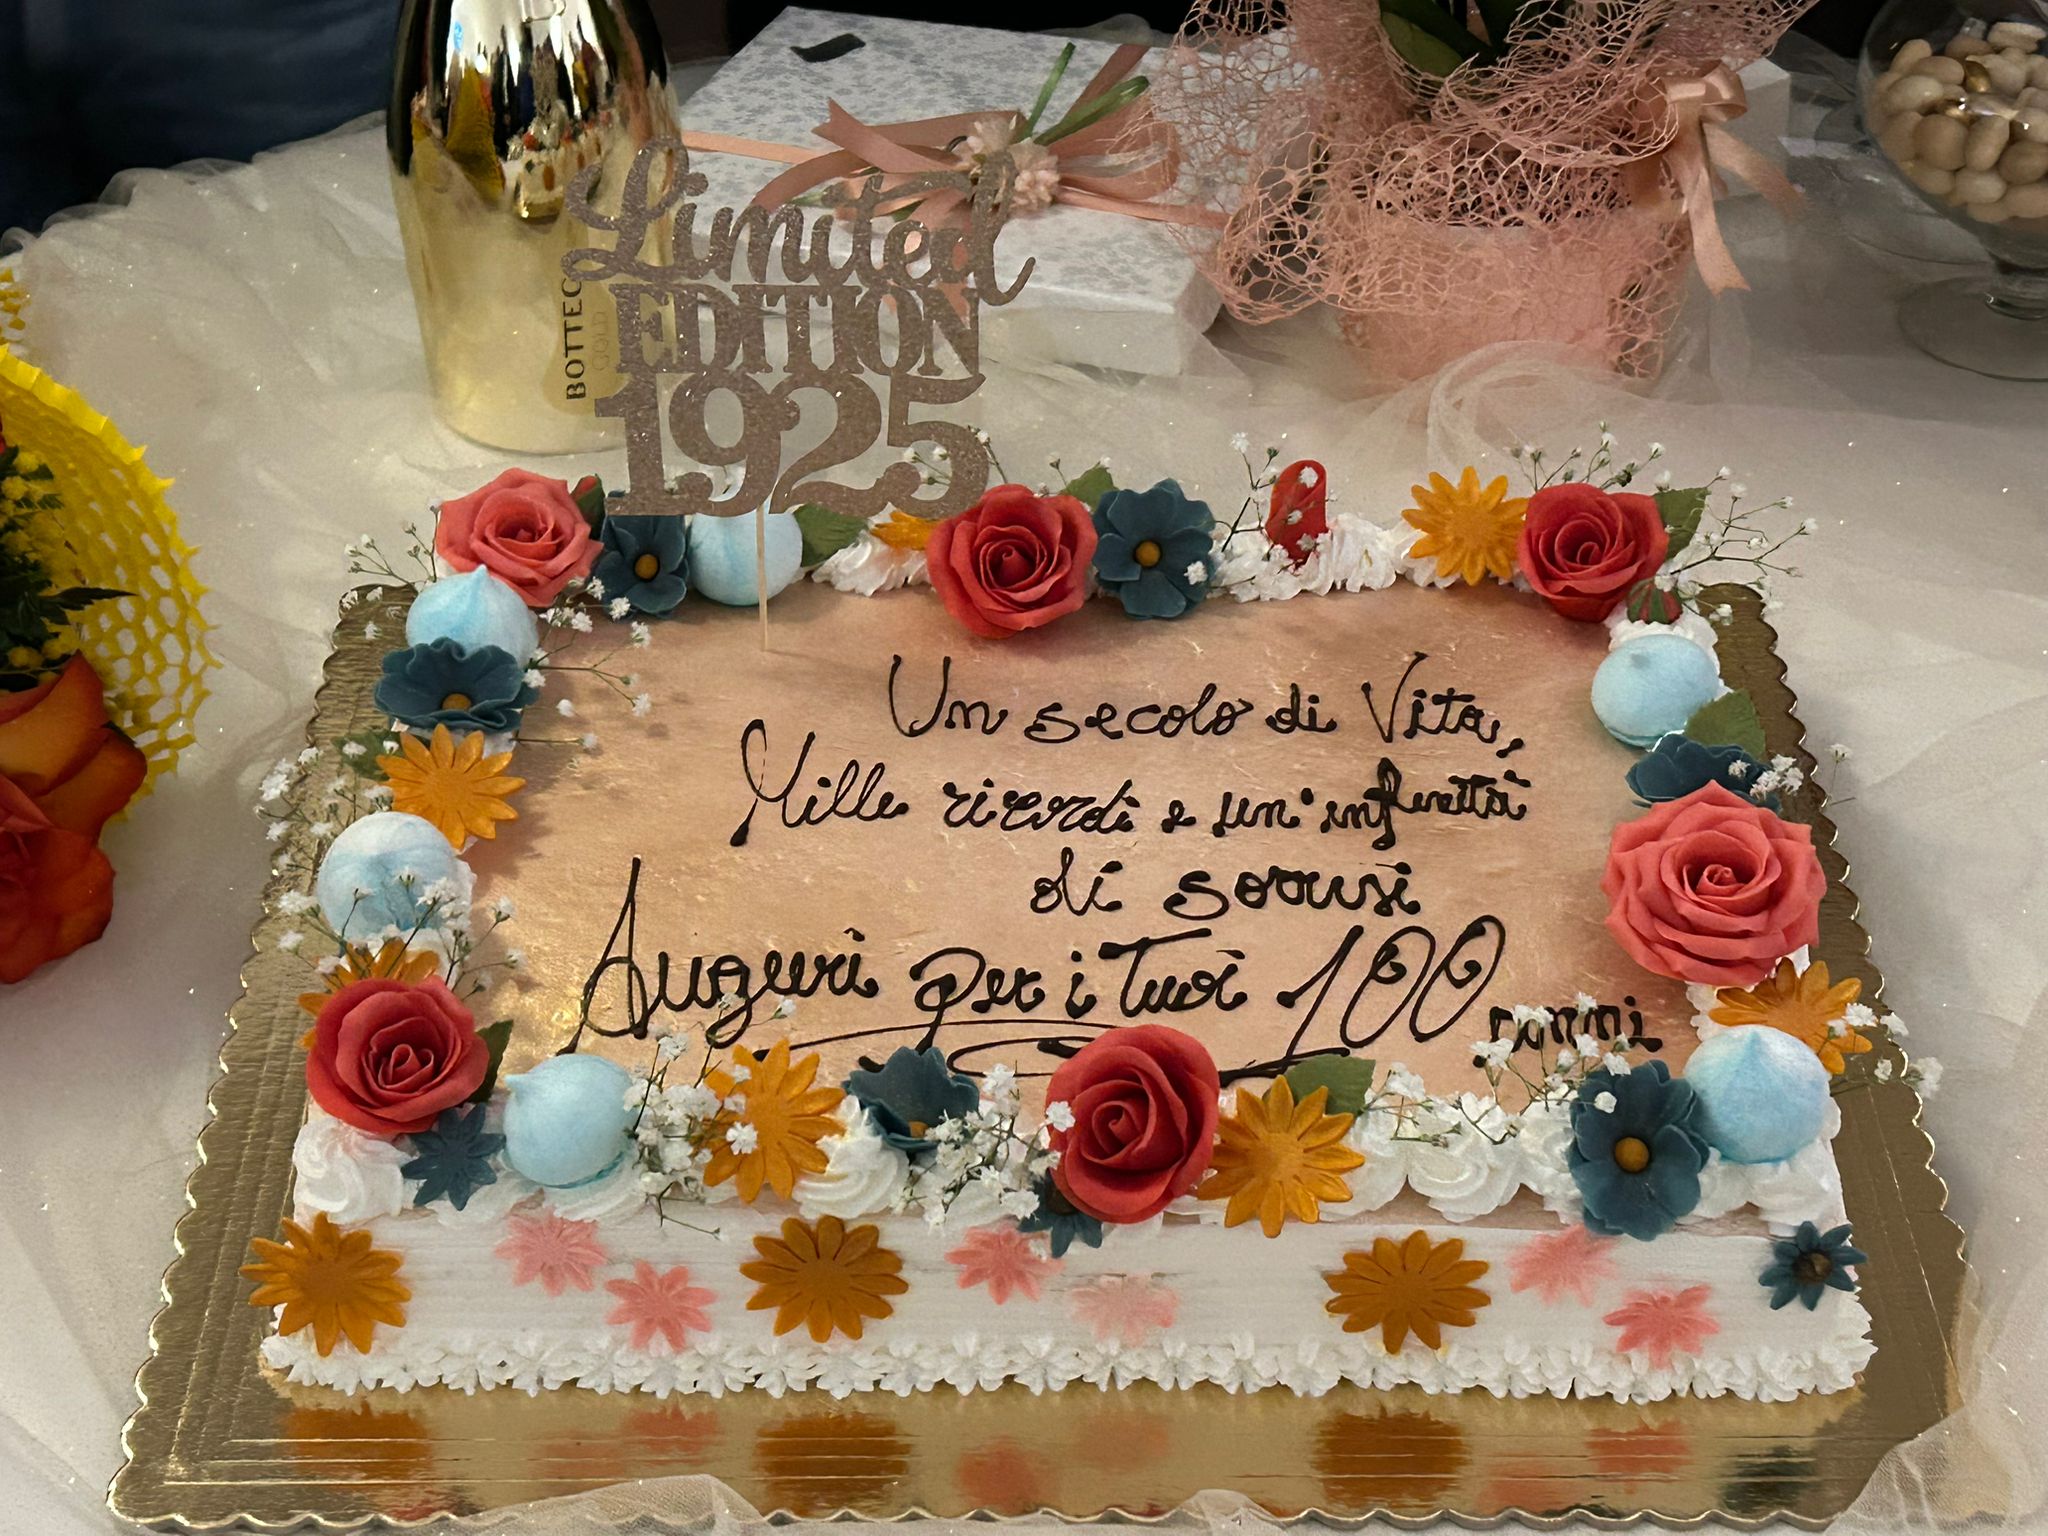 BOTTEGA
GOLD
Limited
EDITION
1925
Un secolo di Vita,
Mille ricordi e un'infinità
di sorrisi
Auguri per i Tuoi 100 anni